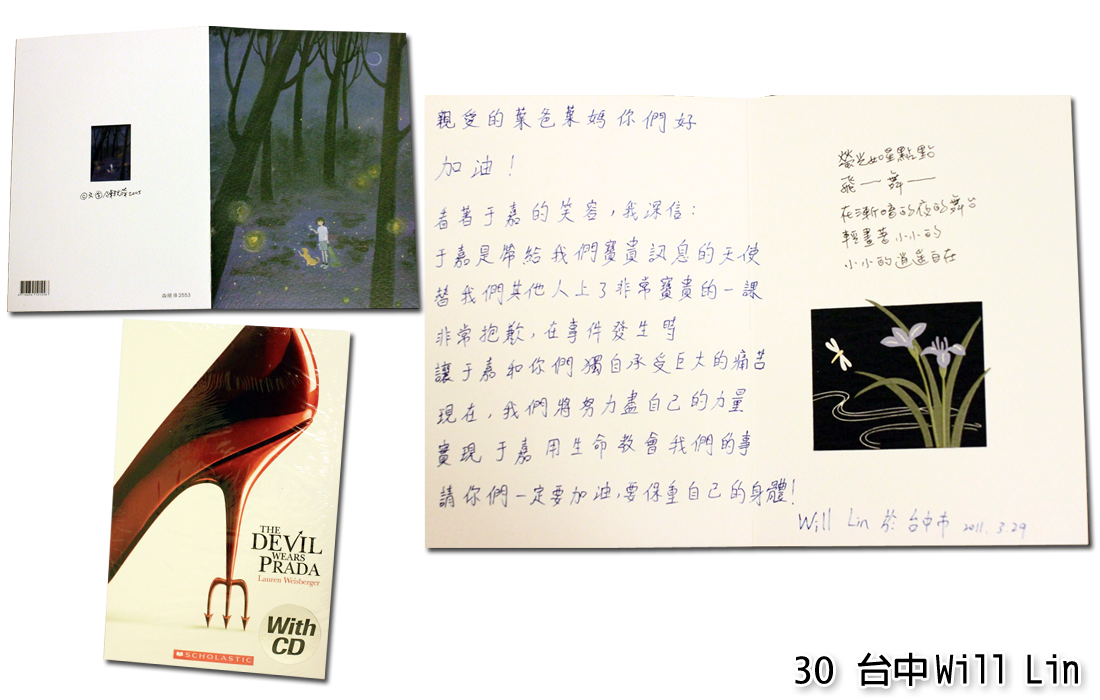 森林傳2553
親愛的葉爸葉媽你們好
加油!
看著于嘉的笑容,我深信:
于嘉是帶給我們寶貴訊息的天使
替我們其他人上了非常寶貴的一課
非常抱歉,在事件發生時
讓于嘉和你們獨自承受巨大的痛苦
現在,我們將努力盡自己的力量
實現于嘉用生命教會我們的事
請你們一定要加油,要保重自己的身體!
螢光如星點點
飛—舞—
在漸暗的夜的舞台
輕畫著小小的
小小的逍遙自在
Will Lin 於台中市 2011.3.29
THE
DEVIL
WEARS
PRADA
Lauren Weisberger
With
CD
SCHOLASTIC
30 台中Will Lin